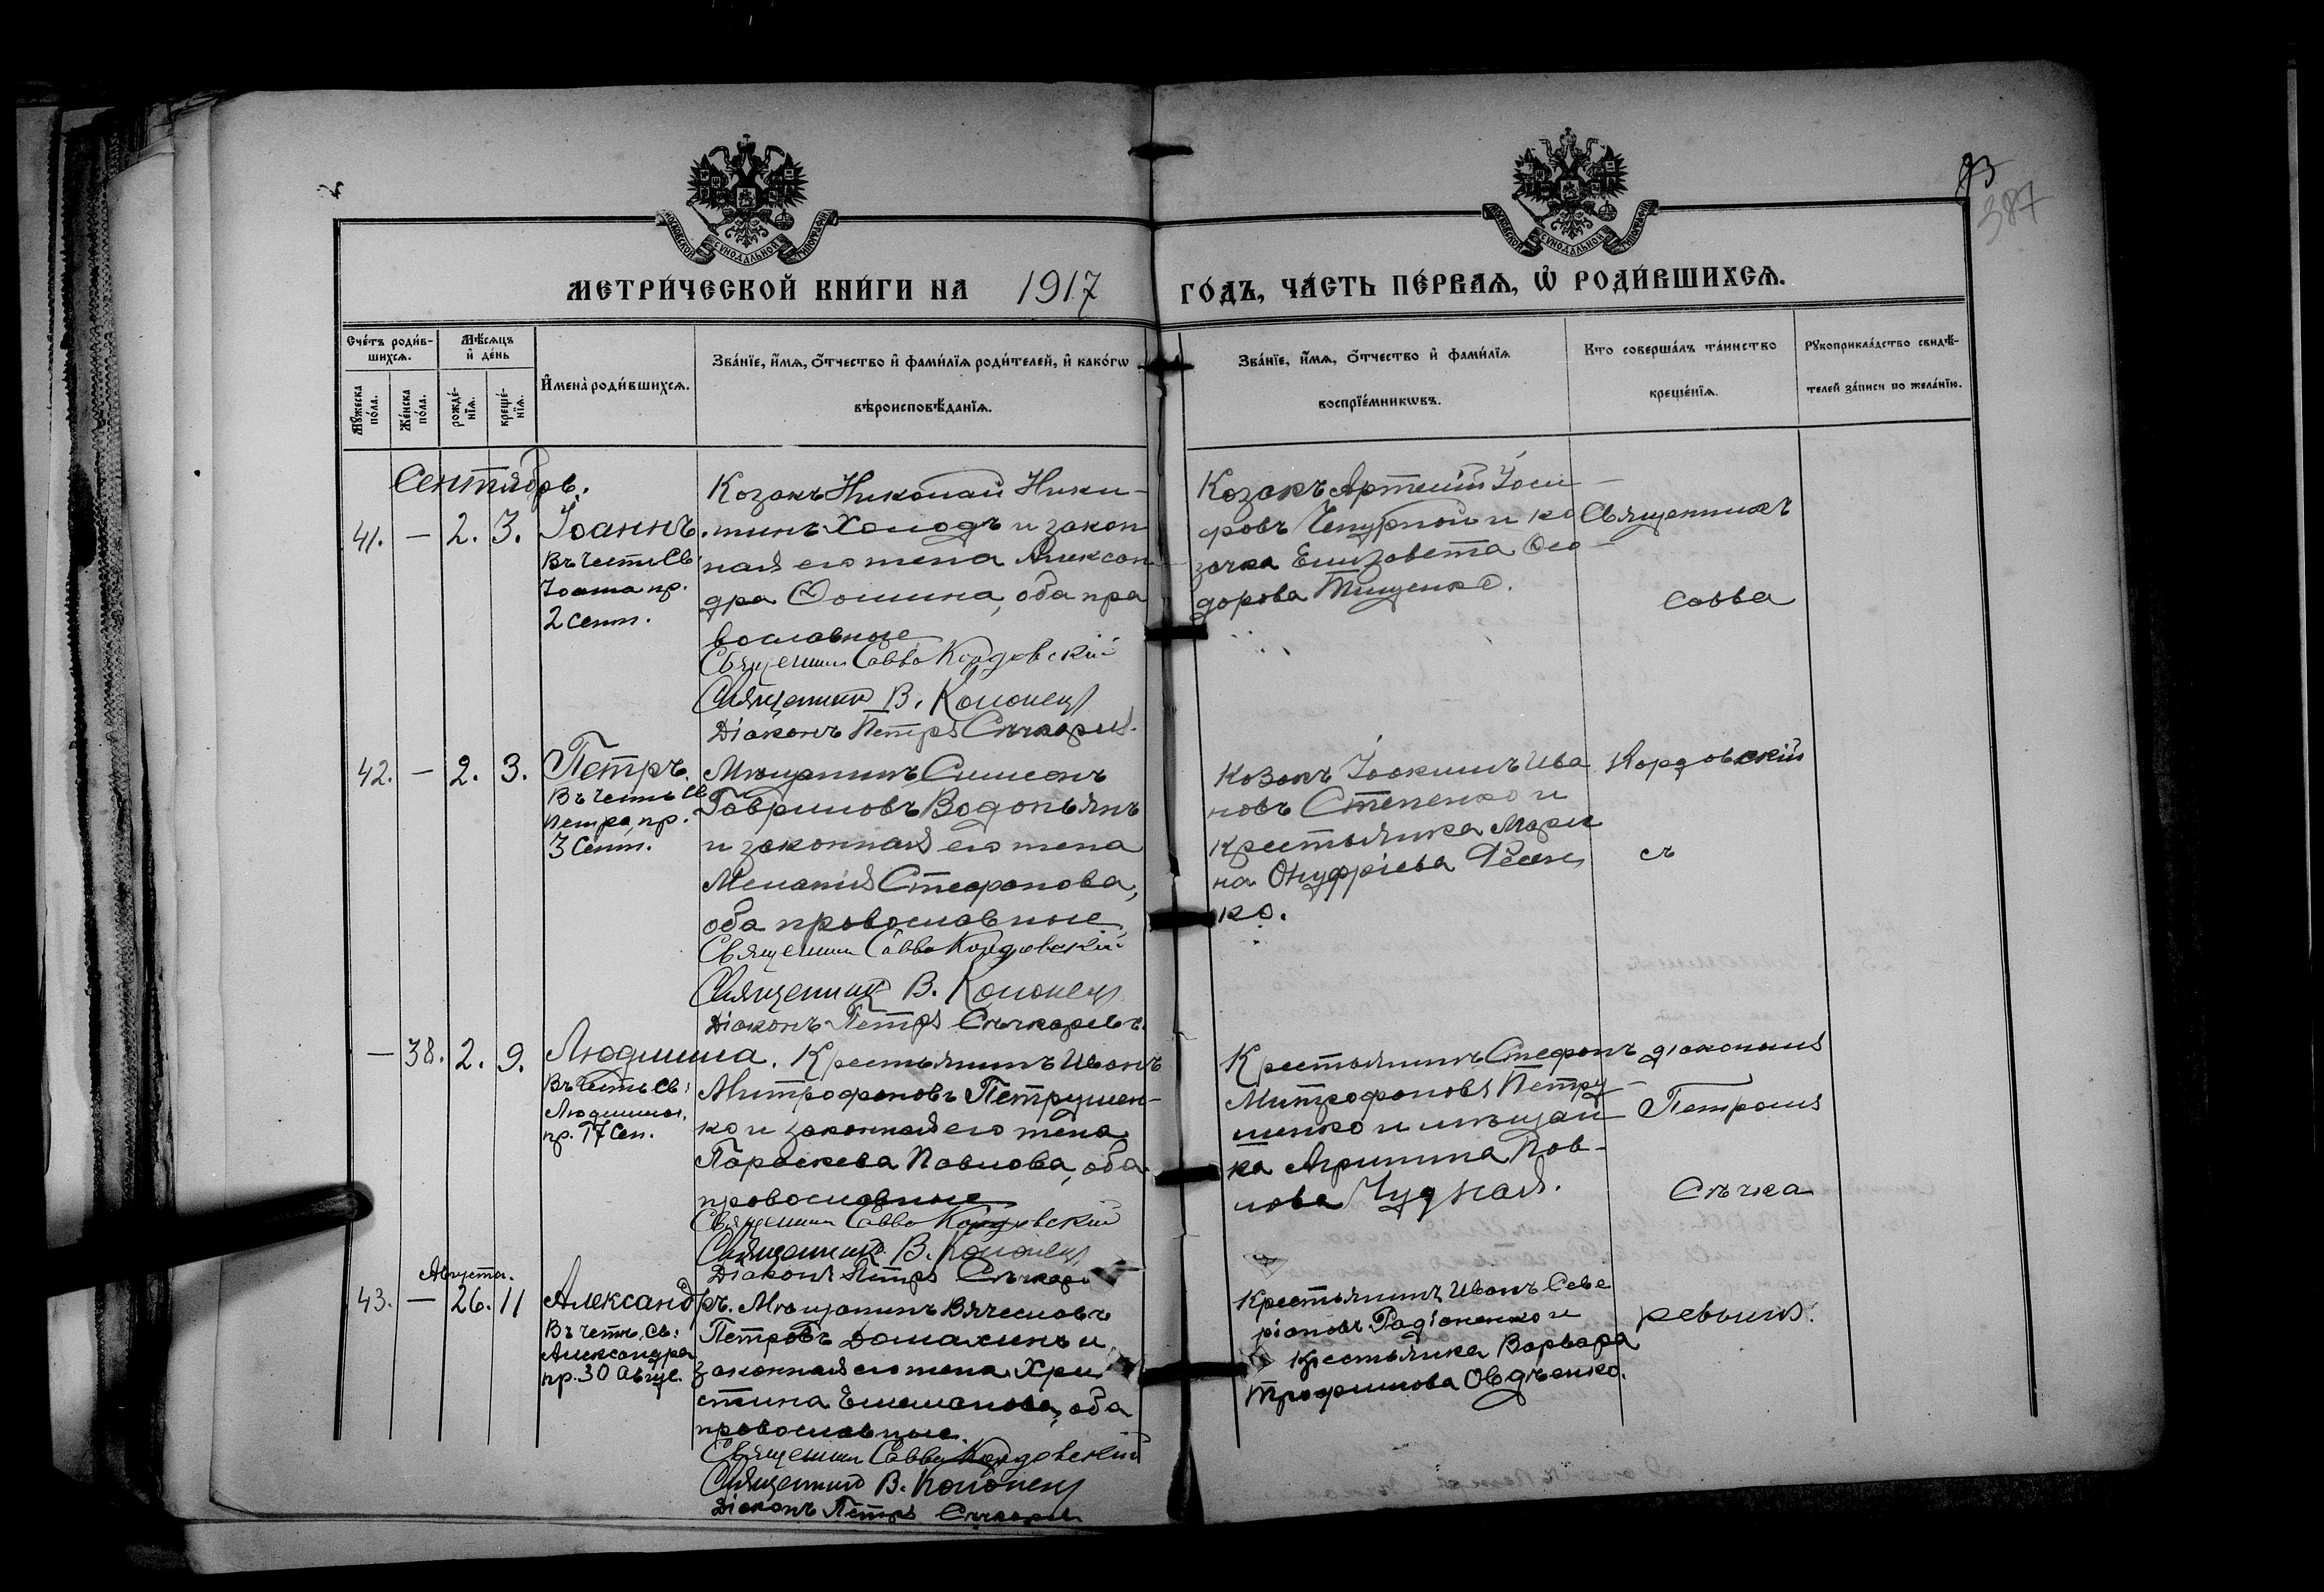 93
387
МОСКОВСКОЙ СУНОДАЛЬНОЙ ТИПОГРАФІИ
МОСКОВСКОЙ СУНОДАЛЬНОЙ ТИПОГРАФІИ
МЕТРИ́ЧЕСКОЙ КНИ́ГИ НА 1917
ГО́ДЪ, ЧА́СТЬ ПЕ́РВАѦ, Ѿ РОДИ́ВШИХСѦ.
Сче́тъ роди́в-
шихсѧ.
Мѣ́сѧцъ
и҆ де́нь
Мꙋ́жеска
по́ла.
Же́нска
по́ла.
рожде́-
нїѧ.
креще́-
нїѧ.
И҆мена̀ роди́вшихсѧ.
Зва́нїе, и҆́мѧ, ѻ҆́тчество и҆ фами́лїѧ роди́телей, и҆ како́гѡ
вѣроисповѣ́данїѧ.
Зва́нїе, и҆́мѧ, ѻ҆́тчество и҆ фами́лїѧ
воспрїе́мникѡвъ.
Кто соверша́лъ та́инство
креще́нїѧ.
Рꙋкоприкла́дство свидѣ́-
телей за́писи по жела́нїю.
Сентябрь.
41. — 2. 3. Іоаннъ.
Въ честь Св
Іоанна пр.
2 Сент.
Козакъ Николай Ники-
тинъ Холодъ и закон
ная его жена Алексан
дра Фомина, оба пра
вославные
Священник Савва Кордовскій
Священникъ В. Кононец
Діаконъ Петръ Сѣчкарев
Козакъ Артемій Іоси
фовъ Чепурной и ко
зачка Елизавета Фео-
дорова Тищенко.
Священникъ
Савва
42. — 2. 3. Петръ.
Въ честь Св
Петра, пр.
3 Сент.
Мѣщанинъ Симеонъ
Гавриловъ Водопьянъ
и законная его жена
Меланія Стефанова,
оба православные
Священник Савва Кордовскій
Священник В. Кононец
Діаконъ Петръ Сѣчкаревъ
Козакъ Іоакимъ Ива
новъ Степенко и
крестьянка Мари
на Онуфріева
ко.
Кордовскій
съ
— 38. 2. 9. Людмила.
Въ честь Св:
Людмилы,
пр. 17 Сен.
Крестьянинъ Иванъ
Митрофановъ Петрушен-
ко и законная его жена
Параскева Павлова, оба
православные
Священник Савва Кордовскій
Священник В. Кононец
Діаконъ Петръ Сѣчкаре
Крестьянинъ Стефанъ
Митрофановъ Петру-
шенко и мѣщан
ка Агрипина Пав-
лова Чудная.
діакономъ
Петромъ
Сѣчка
Августа.
43. — 26. 11 Александръ.
Въ честь Св:
Александра
пр. 30 Авгус.
Мѣщанинъ Вячеславъ
Петровъ Домахинъ и
законная его жена Хри
стина Емельянова, оба
православные.
Священник Савва Кордовскій
Священник В. Кононец
Діаконъ Петръ Сѣчкарев
Крестьянинъ Иванъ Севе
ріановъ Радіоненко и
крестьянка Варвара
Трофимова Овдѣенко.
ревымъ.